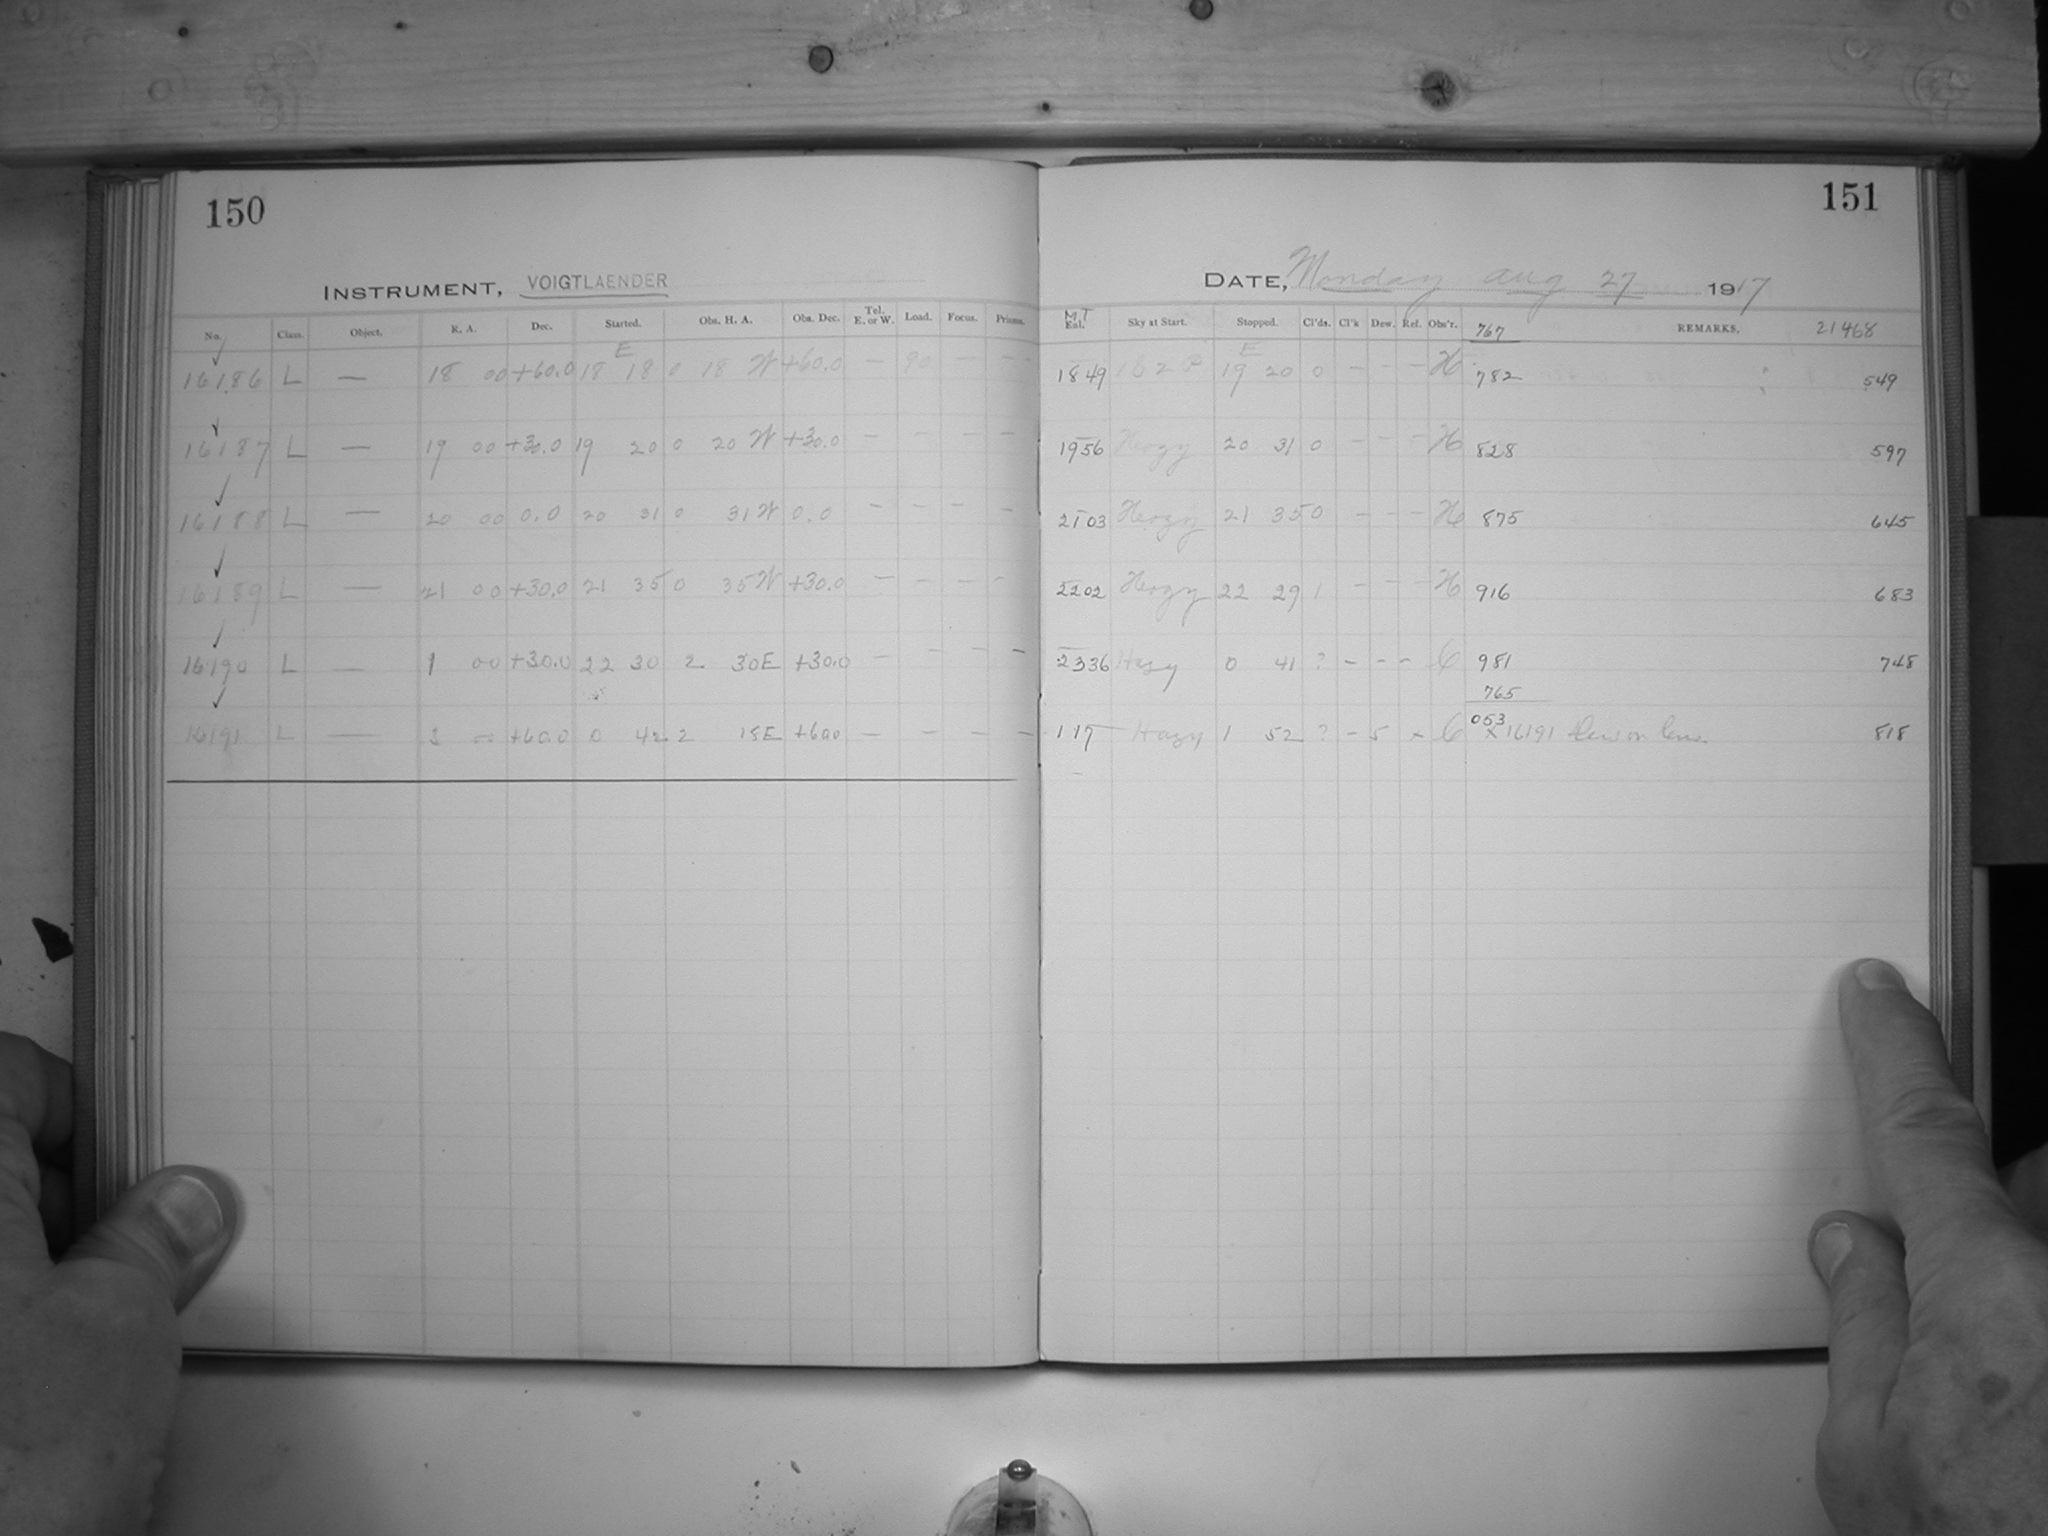 150
INSTRUMENT, VOIGTLAENDER
No. Class. Object. R. A. Dec. Started. Obs. H. A. Obs. Dec. Tel. E. or W. Load. Focus. Prisms.
E
16186 L — 18 00 +60.0 18 18 0 18 W +60.0 — 90 — —
16187 L — 19 00 +30.0 19 20 0 20 W +30.0 — — — —
16188 L — 20 00 0.0 20 31 0 31 W 0.0 — — — —
16189 L — 21 00 +30.0 21 35 0 35 W +30.0 — — — —
16190 L — 1 00 +30.0 22 30 2 30 E +30.0 — — — —
16191 L — 3 00 +60.0 0 42 2 18 E +60.0 — — — —
151
DATE, Monday Aug 27 1917
M.T. Sky at Start. Stopped. Cl'ds. Cl'k Dew. Ref. Obs'r. 767 REMARKS. 21468
E
1849 19 20 0 - - - H 782 549
1956 Hazy 20 31 0 - - - H 828 597
2103 Hazy 21 35 0 - - - H 875 645
2202 Hazy 22 29 1 - - - H 916 683
2336 Hazy 0 41 ? - - - C 981 748
765
117 Hazy 1 52 ? - 5 x C 053 818
x 16191 Dew on lens